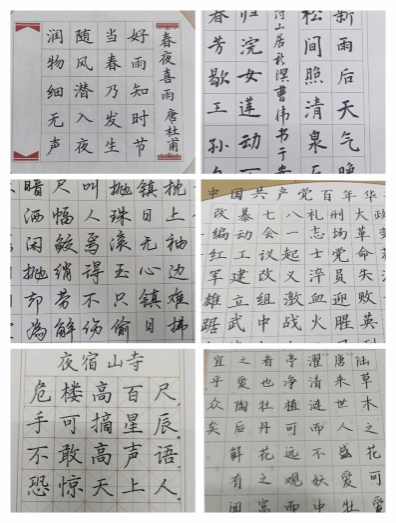 春夜喜雨 唐杜甫
好雨知时节
当春乃发生
随风潜入夜
润物细无声
新雨后天气晚
松间照清泉
山居秋暝曹伟书于
归浣女莲动
春芳歇王孙
枕上袖边难拂
镇日无心镇日
抛珠滚玉只偷
叫人焉得不伤
尺幅鲛绡劳解
暗洒闲抛却为
中国共产党百年华
大革命失败英
刑场党员迎胜
礼志士淬血火
八一起义激战
七会议改组中
暴动工建立武
改编红军雄踞
夜宿山寺
危楼高百尺
手可摘星辰
不敢高声语
恐惊天上人
草木之花可爱
唐来世人盛爱牡
濯清涟而不妖
亭净植可远观而
者也牡丹花之富
之爱陶后鲜有闻
宜乎众矣